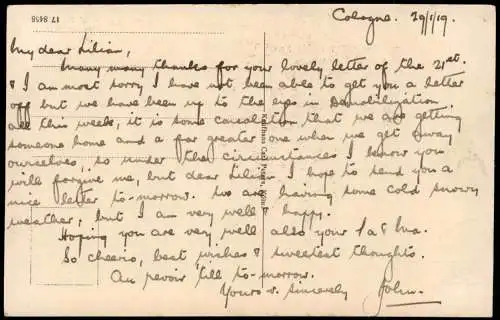 17 8458
Cologne. 29/1/19.
My dear Lilian,
Many many thanks for your lovely letter of the 21st.
& I am most sorry I have not been able to get you a letter
off but we have been up to the eyes in Demobilization
all this week, it is some consolation that we are getting
someone home and a far greater one when we get away
ourselves, so under the circumstances I know you
will forgive me, but dear Lilian I hope to send you a
nice letter to-morrow. We are having some cold snowy
weather, but I am very well & happy.
Hoping you are very well also your Pa & Ma.
So cheerio, best wishes & sweetest thoughts.
Au revoir 'till to-morrow.
Yours v. sincerely John.
Kaufhaus Carl Peters, Köln